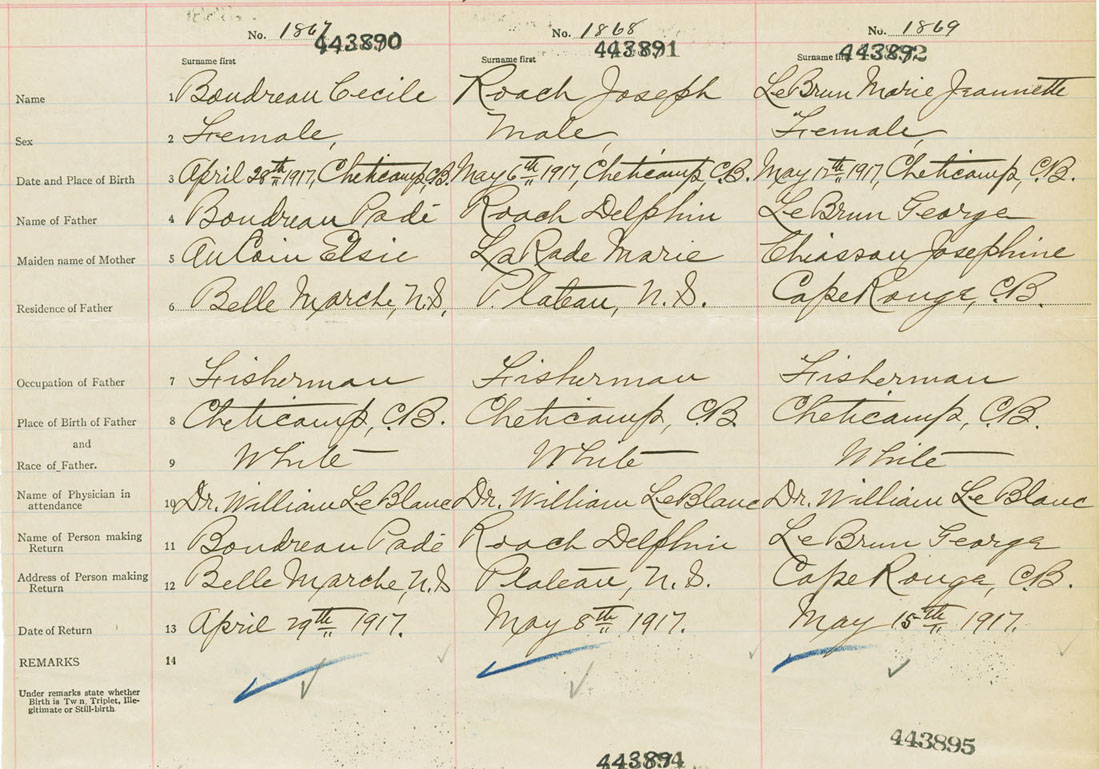 No. 1867 No. 1868 No. 1869
443890 443891 443892
Surname first Surname first Surname first
Name 1 Boudreau Cecile Roach Joseph LeBrun Marie Jeannette
Sex 2 Female, Male, Female,
Date and Place of Birth 3 April 28th 1917, Cheticamp, C.B. May 6th 1917, Cheticamp, C.B. May 1917, Cheticamp, C.B.
Name of Father 4 Boudreau Padé Roach Delphin LeBrun George
Maiden name of Mother 5 AuCoin Elsie LaRade Marie Chiasson Josephine
Residence of Father 6 Belle Marche, N.S, Plateau, N.S. Cape Rouge, C.B.
Occupation of Father 7 Fisherman Fisherman Fisherman
Place of Birth of Father 8 Cheticamp, C.B. Cheticamp, C.B. Cheticamp, C.B.
and
Race of Father. 9 White White White
Name of Physician in
attendance 10 Dr. William LeBlanc Dr. William LeBlanc Dr. William LeBlanc
Name of Person making
Return 11 Boudreau Padé Roach Delphin LeBrun George
Address of Person making
Return 12 Belle Marche, N.S Plateau, N.S. Cape Rouge, C.B.
Date of Return 13 April 29th 1917. May 8th 1917. May 15th 1917.
REMARKS 14
Under remarks state whether
Birth is Tw n, Triplet, Ille-
gitimate or Still-birth
443894 443895